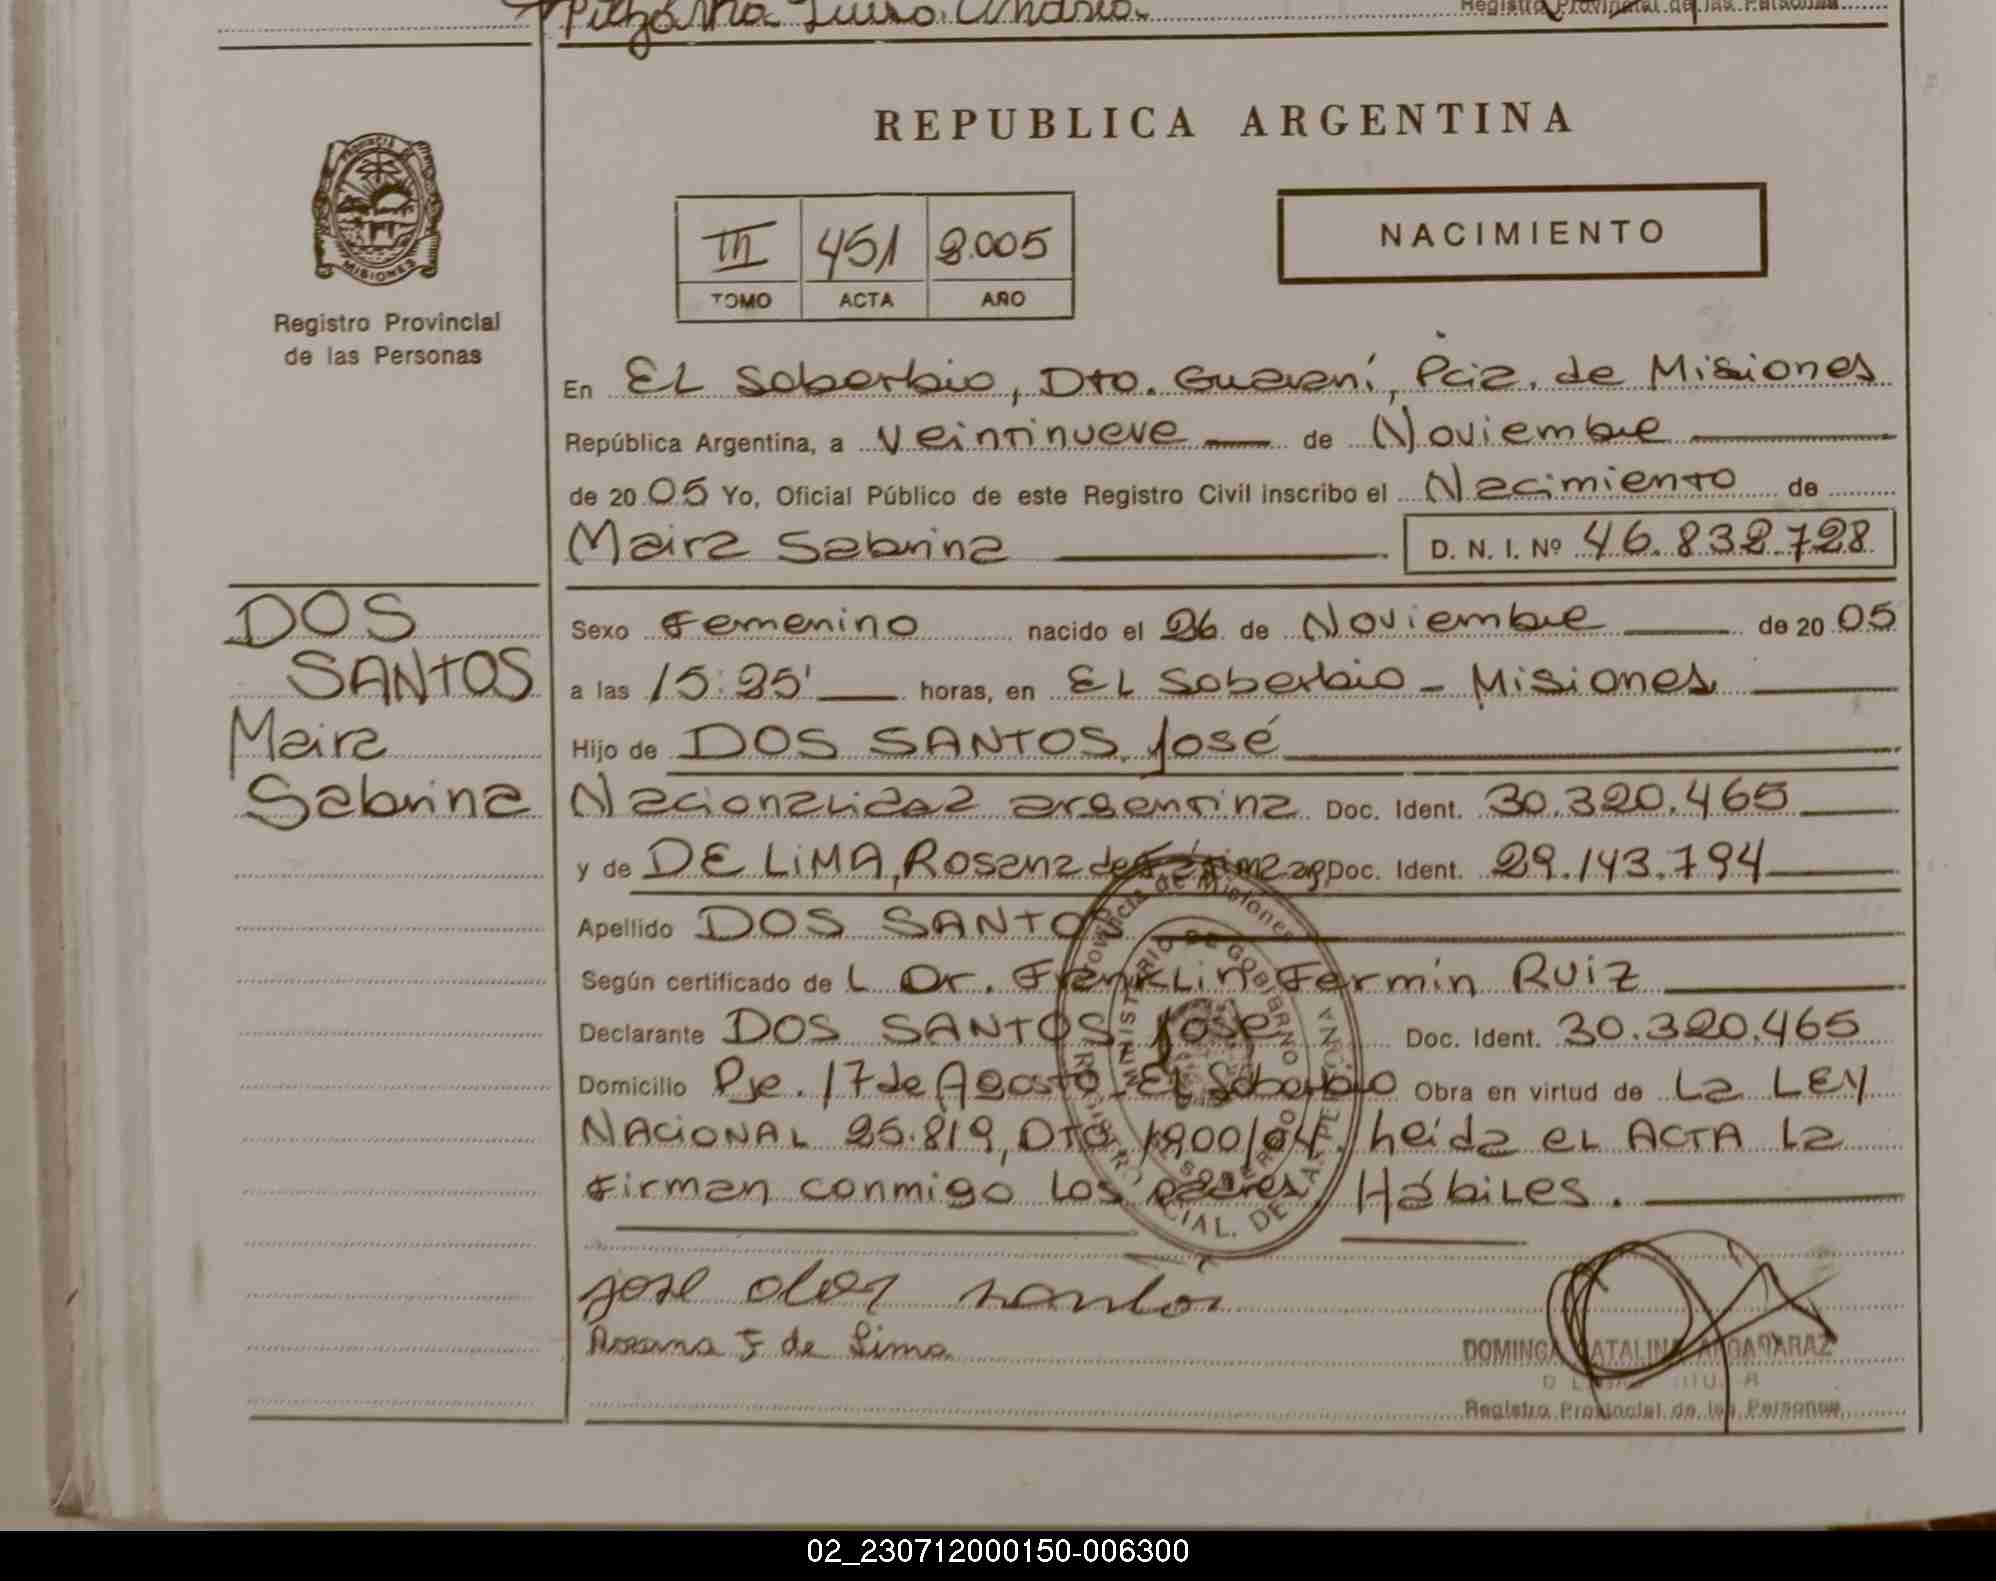 Luisa Andrea.
Registro Provincial de las Personas
REPUBLICA ARGENTINA
PROVINCIA DE MISIONES
III 451 2.005
TOMO ACTA AÑO
NACIMIENTO
Registro Provincial
de las Personas
En EL Soberbio, Dto. Guaraní, Pcia. de Misiones
República Argentina, a Veintinueve de Noviembre
de 2005 Yo, Oficial Público de este Registro Civil inscribo el Nacimiento de
Maira Sabrina D. N. I. Nº 46.832.728
DOS
SANTOS
Maira
Sabrina
Sexo Femenino nacido el 26 de Noviembre de 2005
a las 15:25' horas, en EL Soberbio - Misiones
Hijo de DOS SANTOS, José
Nacionalidad argentina Doc. Ident. 30.320.465
y de DE LiMA, Rosana de Fátima arg Doc. Ident. 29.143.794
Apellido DOS SANTOS
Según certificado de L Dr. Franklin Fermín Ruiz
Declarante DOS SANTOS, José Doc. Ident. 30.320.465
Domicilio Pje. 17 de Agosto - EL Soberbio Obra en virtud de La LEY
NACIONAL 25.819, DTO 1900/04, heida eL ACTA La
Firman conmigo Los padres, HábiLes.
Provincia de Misiones
MINISTERIO DE GOBIERNO
REGISTRO PROVINCIAL DE LAS PERSONAS
jose dos santos
Rosana F de Lima
DOMINGA CATALINA
Registro Provincial de las Personas
02_230712000150-006300